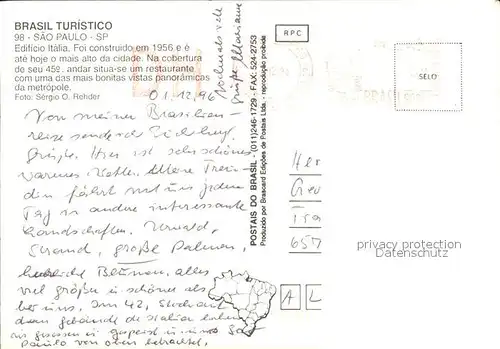 BRASIL TURÍSTICO
98 - SÃO PAULO - SP
Edifício Itália. Foi construido em 1956 e é
até hoje o mais alto da cidade. Na cobertura
de seu 45º. andar situa-se um restaurante
com uma das mais bonitas vistas panorâmicas
da metrópole.
Foto: Sérgio O. Rehder
01.12.96
Von meiner Brasilien-
reise sende ich Dir
Grüße. Hier ist sehr schönes,
warmes Wetter. Meine Freun-
din fährt mit uns jeden
Tag in andere interessante
Landschaften. Urwald,
Strand, große Palmen,
herrliche Blumen, alles
viel größer u. schöner als
bei uns. Im 42. Stockwerk
dem Gebäude de Italia haben
wir gegessen u. São
Paulo von oben betrachtet.
Nochmals viele
Grüße Marianne
POSTAIS DO BRASIL - (011)246-1729 - FAX: 524-2753
Produzido por Brascard Edições de Postais Ltda. - reprodução proibida
RPC
SELO
Her
Geo
657
privatsphäre-Datenschutz
A L